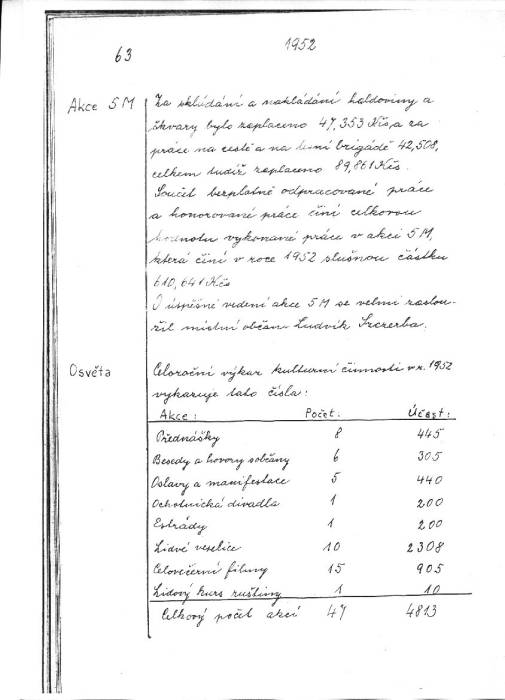 63
1952
Akce 5M
Za skládání a nakládání haldoviny a
škvary bylo zaplaceno 47,353 Kčs, a za
práce na cestě a na lesní brigádě 42,508,
celkem tudíž zaplaceno 89,861 Kčs.
Součet bezplatně odpracované práce
a honorované práce činí celkovou
hodnotu vykonané práce v akci 5M,
která činí v roce 1952 slušnou částku
610,641 Kčs
O úspěšné vedení akce 5M se velmi zaslou-
žil místní občan Ludvík Szczerba.
Osvěta
Celoroční výkaz kulturní činnosti v r. 1952
vykazuje tato čísla:
Akce: Počet: Účast:
Přednášky 8 445
Besedy a hovory s občany 6 305
Oslavy a manifestace 5 440
Ochotnická divadla 1 200
Estrády 1 200
Lidové veselice 10 2308
Celovečerní filmy 15 905
Lidový kurs ruštiny 1 10
Celkový počet akcí 47 4813